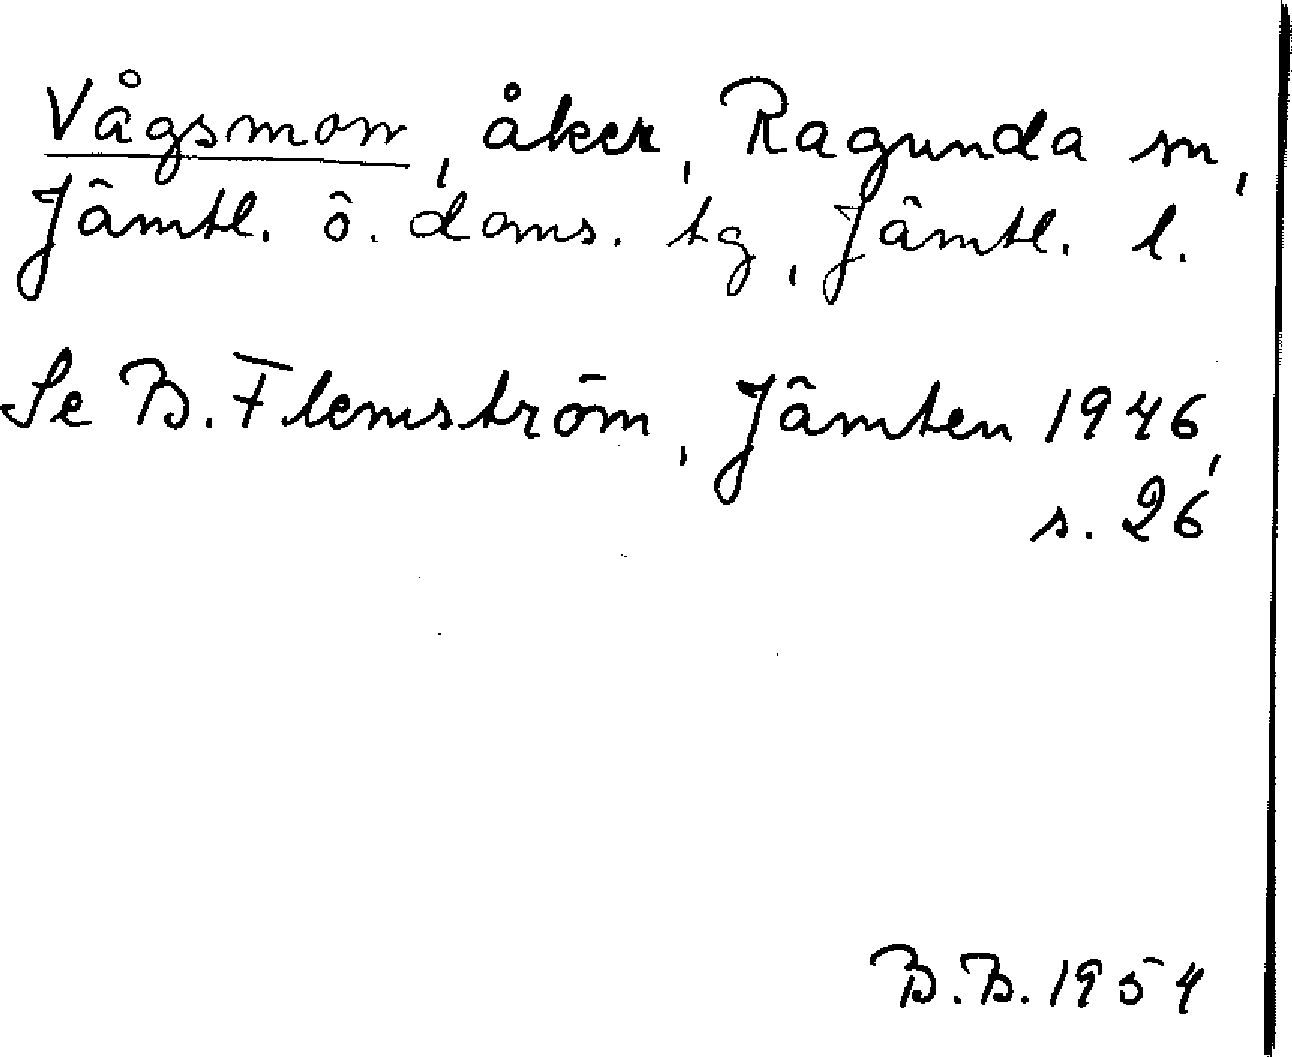 Vågsmon, åker, Ragunda sn,
Jämtl. ö. doms. tg, Jämtl. l.
Se B. Flemström, Jämten 1946,
s. 26
B.B. 1954